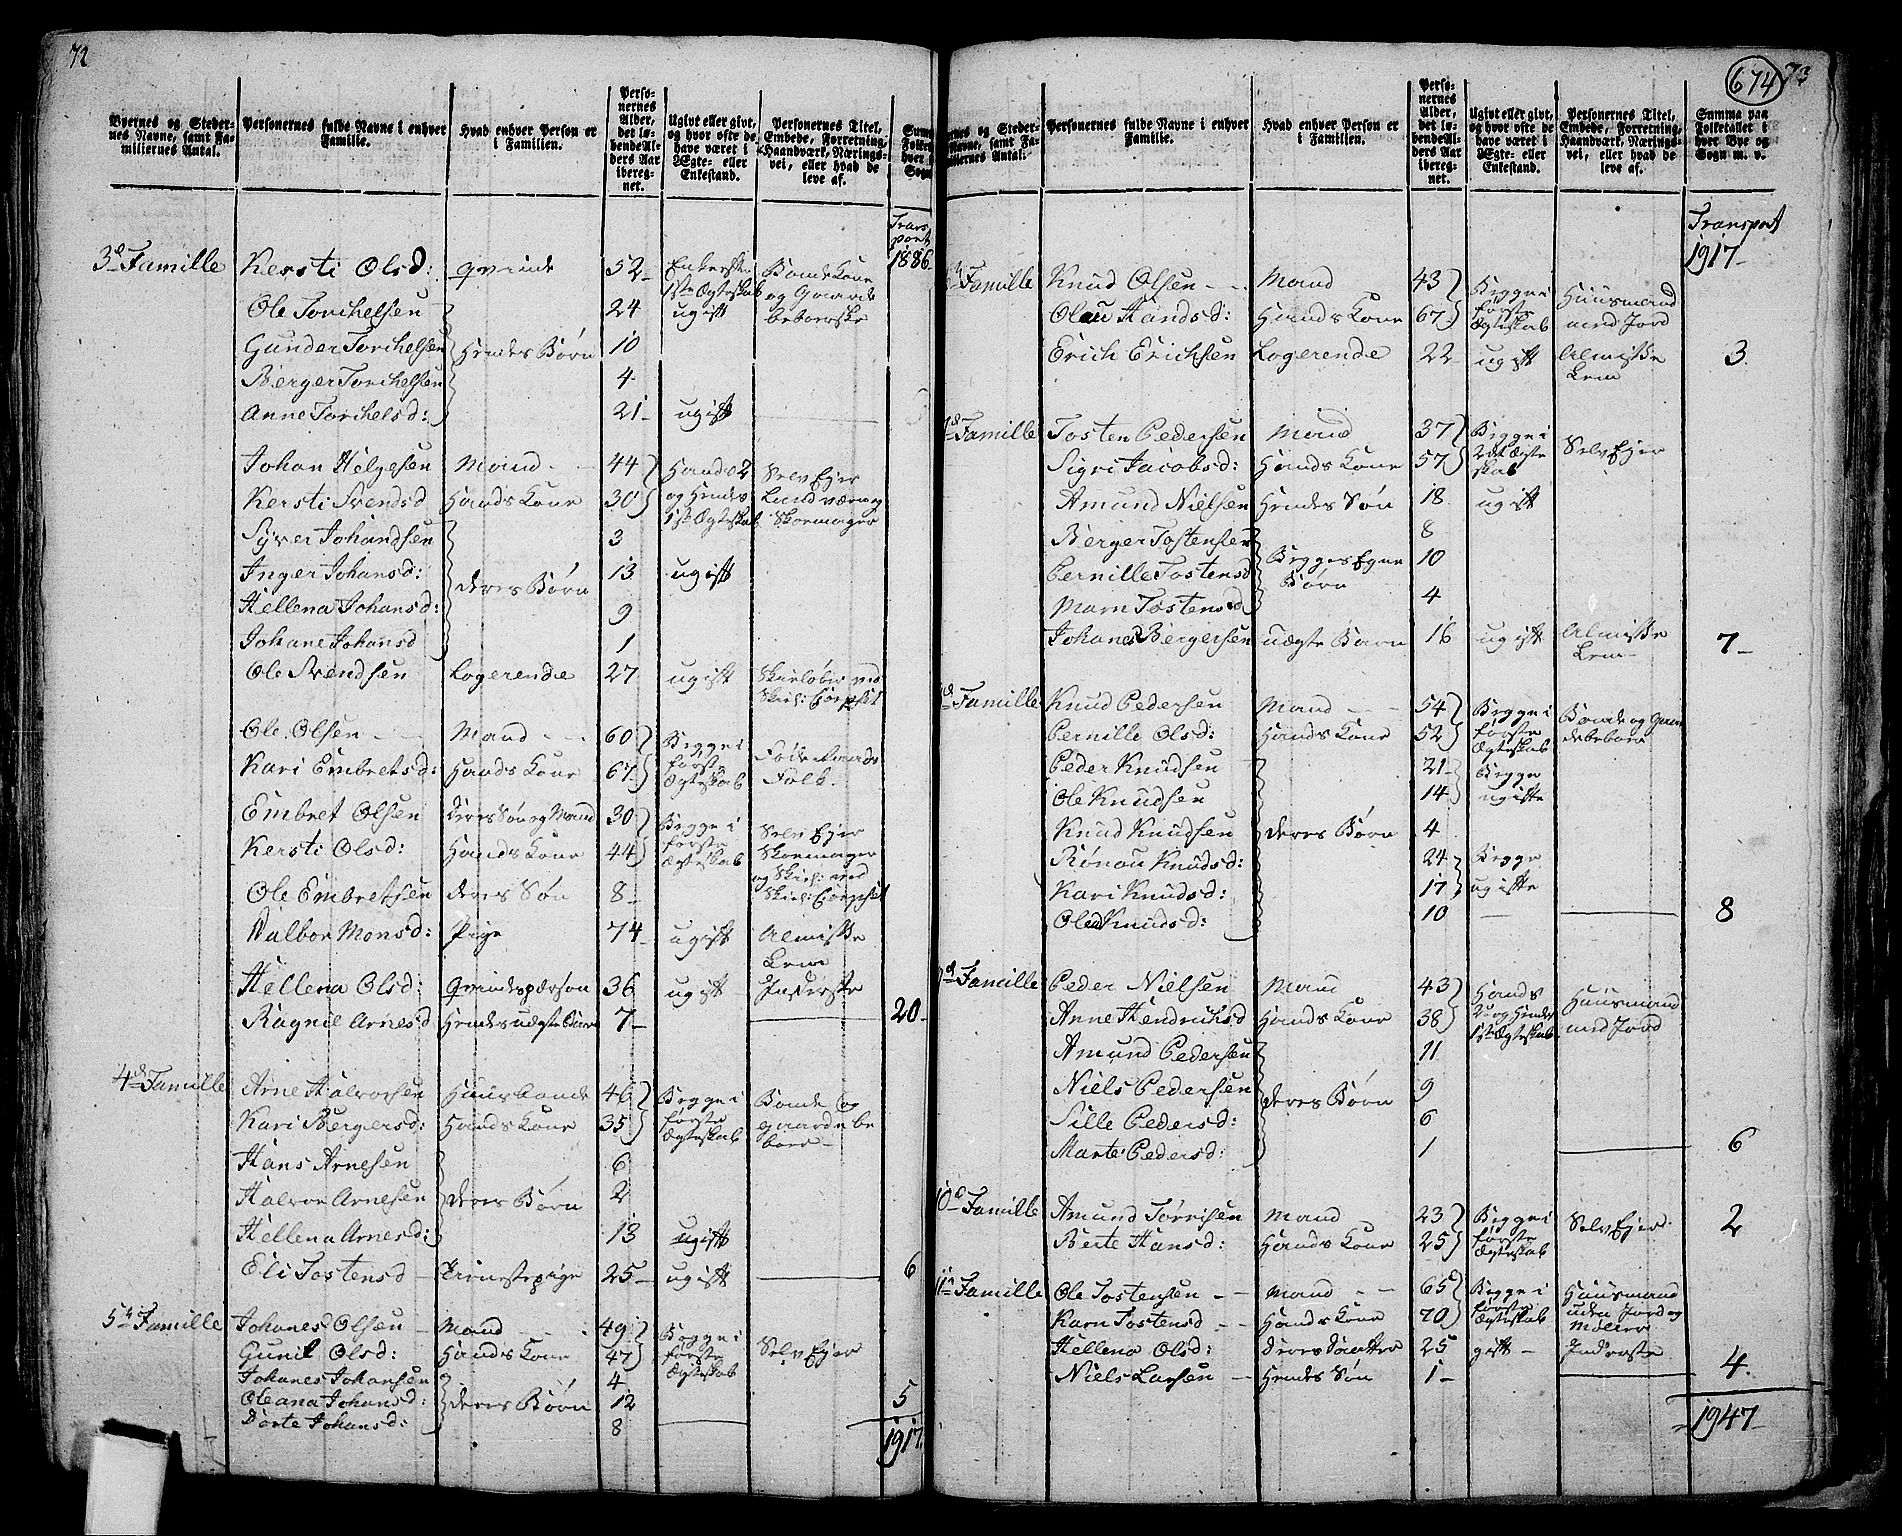 72
Byernes og Steder-
nes Navne, samt Fa-
miliernes Antal.
Personernes fulde Navne i enhver
Familie.
Hvad enhver Person er
i Familien.
Perso-
nernes
Alder,
det lø-
bende Al-
ders Aar
ibereg-
net.
Ugivt eller givt,
og hvor ofte de
have været i
Ægte- eller
Enkestand.
Personernes Titel,
Embede, Forretning,
Haandværk, Nærings-
vei, eller hvad de
leve af.
Trans-
port
1886
3d Familie Kersti Olsd: Qvinde 52 Enke efter 1ste Ægteskab Bonde Kone og Gaard beboerske
Ole Torchelsen 24 ugift
Gunder Torchelsen Hendes Børn 10
Berger Torchelsen 4
Anne Torchelsd: 21 ugift
Johan Helgesen Mand 44 Hands 2 og Hendes 1ste Ægteskab Selv Ejer
Kersti Svendsd Hands Kone 30 Skoemager
Syver Johandsen 3
Inger Johansd: deres Børn 13 ugift
Hellena Johansd: 9
Johane Johansd 1
Ole Svendsen Logerende 27 ugift Skieløber ved
Ole Olsen Mand 60 Begge i første Ægteskab Føderaads Folk
Kari Embretsd: Hands Kone 67
Embret Olsen deres Søn og Mand 30 Begge i første Ægteskab Selv Ejer Skoemager
Kersti Olsd: Hands Kone 44
Ole Embretsen deres Søn 8
Valbor Monsd: Pige 74 ugift Almisse Lem
Hellena Olsd: Qvindesperson 36 ugift Inderste
Ragnil Arnesd Hendes uægte Barn 7 20
4de Familie Arne Halvorsen Huusbonde 46 Begge i første Ægteskab Bonde og gaardbeboer
Kari Bergersd: Hands Kone 35
Hans Arnesen 6
Halvor Arnesen deres Børn 2
Hellena Arnesd: 13 ugift
Eli Tostensd Tienestepige 25 ugift 6
5te Familie Johanes Olsen Mand 49 Begge i første Ægteskab Selv Ejer
Gunil Olsd: Hands Kone 47
Johanes Johansen 4
Oleana Johansd: deres Børn 12
Dorte Johansd: 8 5
1917
674 73
Personernes fulde Navne i enhver
Familie.
Hvad enhver Person er
i Familien.
Perso-
nernes
Alder,
det lø-
bende Al-
ders Aar
ibereg-
net.
Ugivt eller givt,
og hvor ofte de
have været i
Ægte- eller
Enkestand.
Personernes Titel,
Embede, Forretning,
Haandværk, Nærings-
vei, eller hvad de
leve af.
Summa paa
Folketallet i
hver Bye og
Sogn m. v.
Transport
1917
Familie Knud Olsen Mand 43 Begge i første Ægteskab Huusmand med Jord
Olau Handsd: Hands Kone 67
Erich Erichsen Logerende 22 ugift Almisse Lem 3
Familie Tosten Pedersen Mand 37 Begge i 2det Ægteskab Selv Ejer
Sigri Jacobsd: Hands Kone 57
Amund Nielsen Hendes Søn 18 ugift
Berger Tostensen 8
Pernille Tostensd Begges Egne Børn 10
Marn Tostensd 4
Johanes Bergersen uægte Barn 16 ugift Almisse Lem 7
Familie Knud Pedersen Mand 54 Begge i første Ægteskab Bonde og Gaardebeboer
Pernille Olsd: Hands Kone 52
Peder Knudsen 21 Begge ugifte
Ole Knudsen 14
Knud Knudsen deres Børn 4
Rønau Knudsd: 24 Begge ugifte
Kari Knudsd: 17
Olea Knudsd: 10 8
9de Familie Peder Nielsen Mand 43 Hands 2 og Hendes 1ste Ægteskab Huusmand med Jord
Anne Hendrichsd Hands Kone 38
Amund Pedersen 11
Niels Pedersen deres Børn 9
Sille Pedersd: 6
Marte Pedersd: 1 6
10de Familie Amund Tørrisen Mand 23 Begge i første Ægteskab Selv Ejer 2
Berte Hansd: Hands Kone 25
11te Familie Ole Tostensen Mand 65 Begge i første Ægteskab Huusmand uden Jord og Møller
Karn Tostensd Hands Kone 70
Hellena Olsd: deres Daatter 25 gift Inderste
Niels Larsen Hendes Søn 1 4
1947